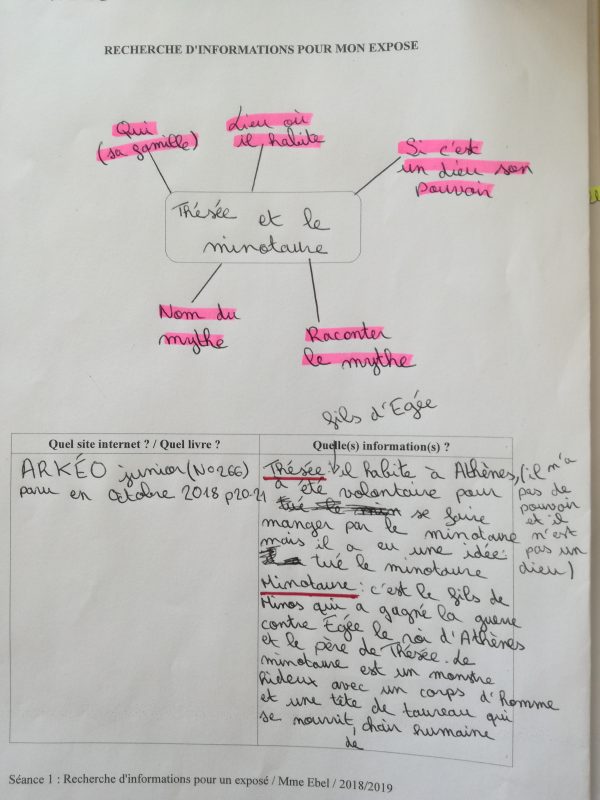 RECHERCHE D'INFORMATIONS POUR MON EXPOSE
Qui
(sa famille)
Lieu où
il habite
Si c'est
un dieu son
pouvoir
Thésée et le
minotaure
Nom du
mythe
Raconter
le mythe
fils d'Egée
Quel site internet ? / Quel livre ?
ARKÉO junior (No 266)
paru en Octobre 2018 p20-21
Quelle(s) information(s) ?
Thésée : il habite à Athènes, (il n'a
a été volontaire pour pas de
se faire pouvoir
manger par le minotaure et il
mais il a eu une idée: n'est
tué le minotaure pas un
dieu)
Minotaure : c'est le fils de
Minos qui a gagné la guerre
contre Egée le roi d'Athènes
et le père de Thésée. Le
minotaure est un monstre
hideux avec un corps d'homme
et une tête de taureau qui
se nourrit de chair humaine
Séance 1 : Recherche d'informations pour un exposé / Mme Ebel / 2018/2019